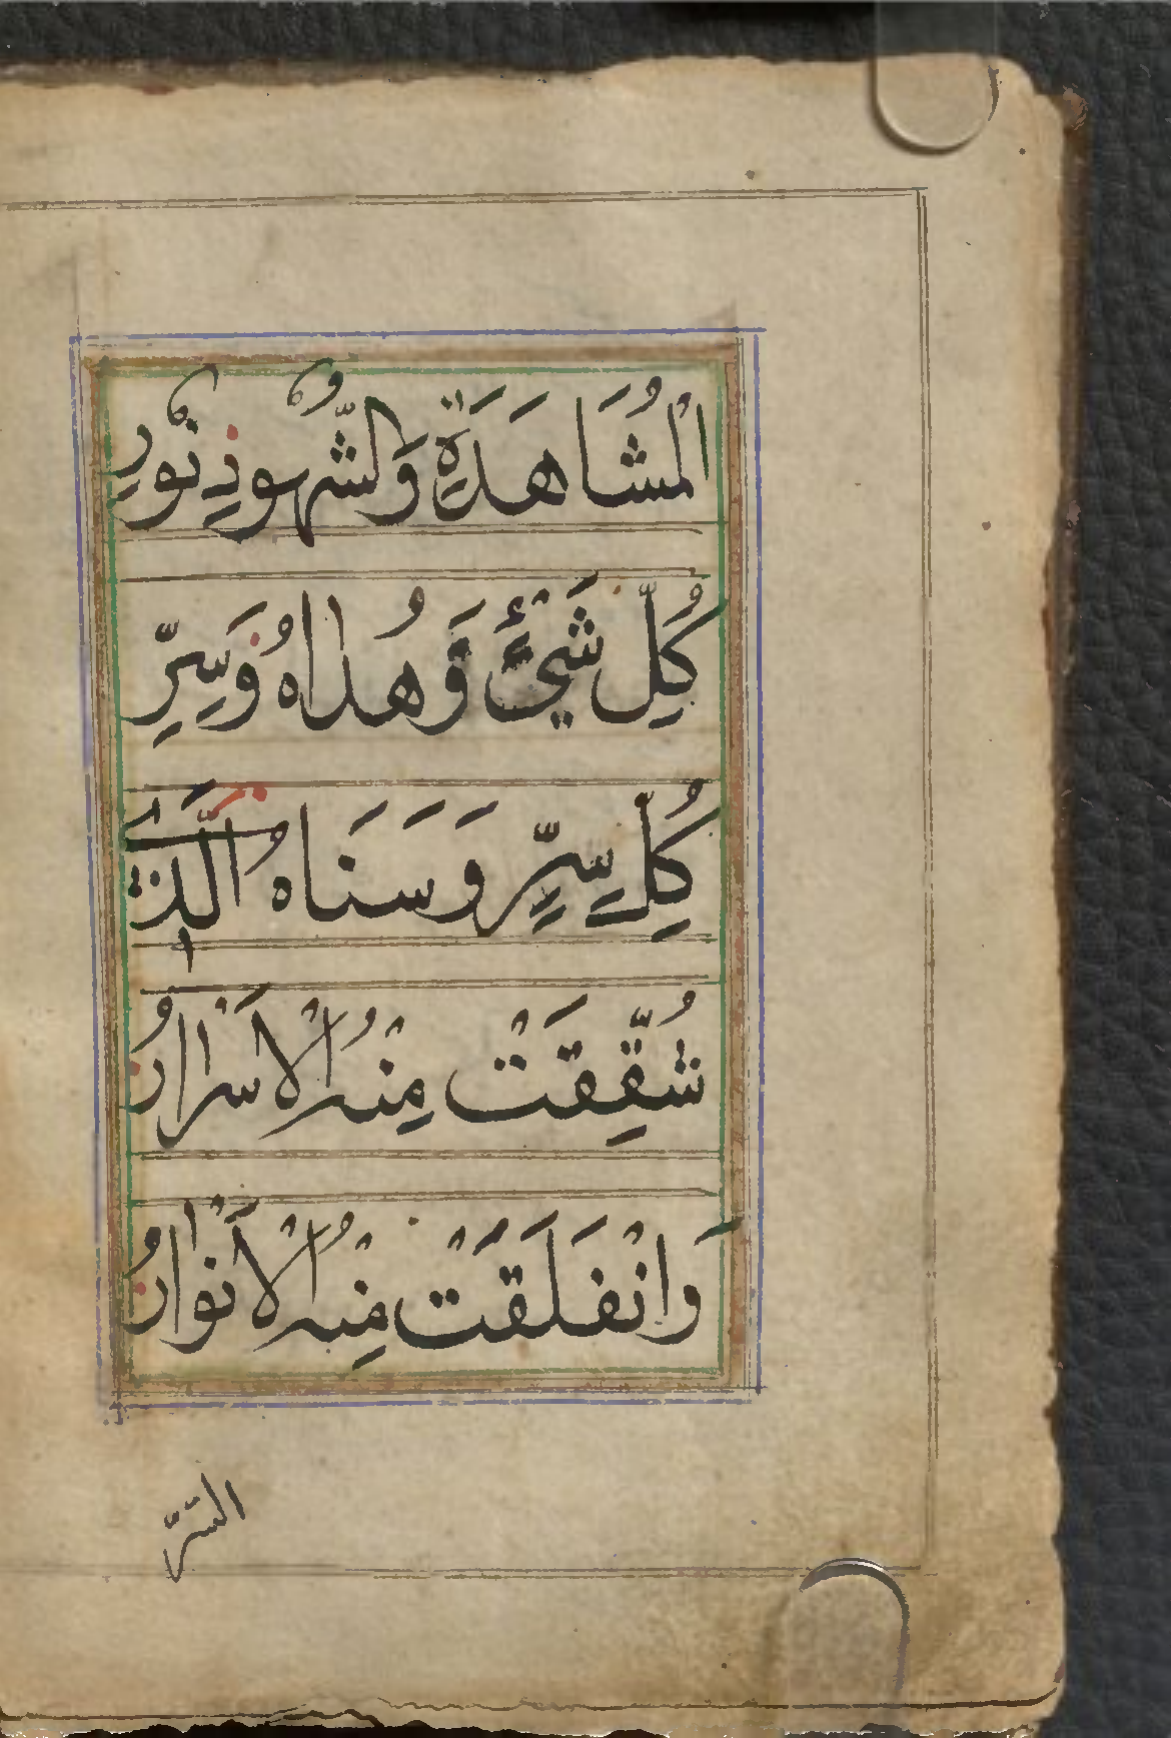 الْمُشَاهَدَةِ وَلشُّهُودِ نُورِ
كُلِّ شَيْءٍ وَهُدَاهُ وَسِرِّ
كُلِّ سِرٍّ وَسَنَاهُ الَّذِي
شُقِّقَتْ مِنْهُ الْاَسْرَارُ
وَانْفَلَقَتْ مِنْهُ الْاَنْوَارُ
السّرّ